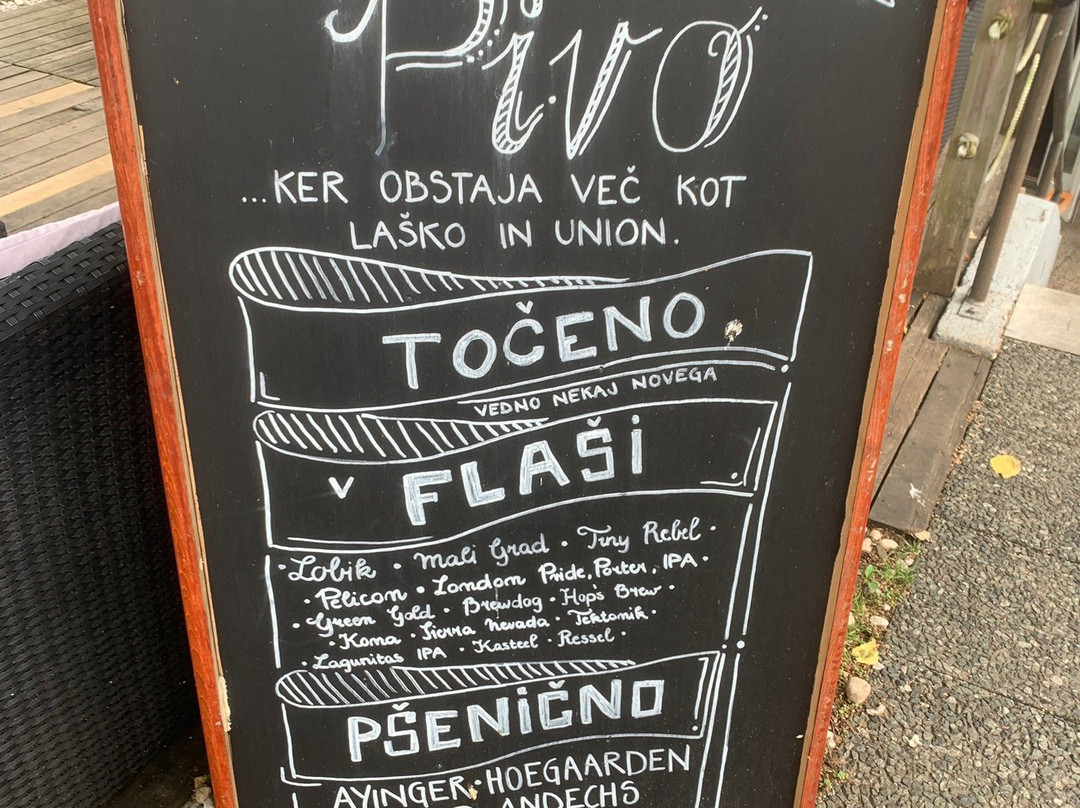 Pivo
...KER OBSTAJA VEČ KOT
LAŠKO IN UNION.
TOČENO
VEDNO NEKAJ NOVEGA
V FLAŠi
· Lobik · Mali Grad · Tiny Rebel ·
· Pelicon · London Pride, Porter, IPA ·
· Green Gold · Brewdog · Hop's Brew ·
· Koma · Sierra Nevada · Tektonik ·
· Lagunitas IPA · Kasteel · Ressel ·
PŠENiČNO
AYINGER · HOEGAARDEN
ANDECHS